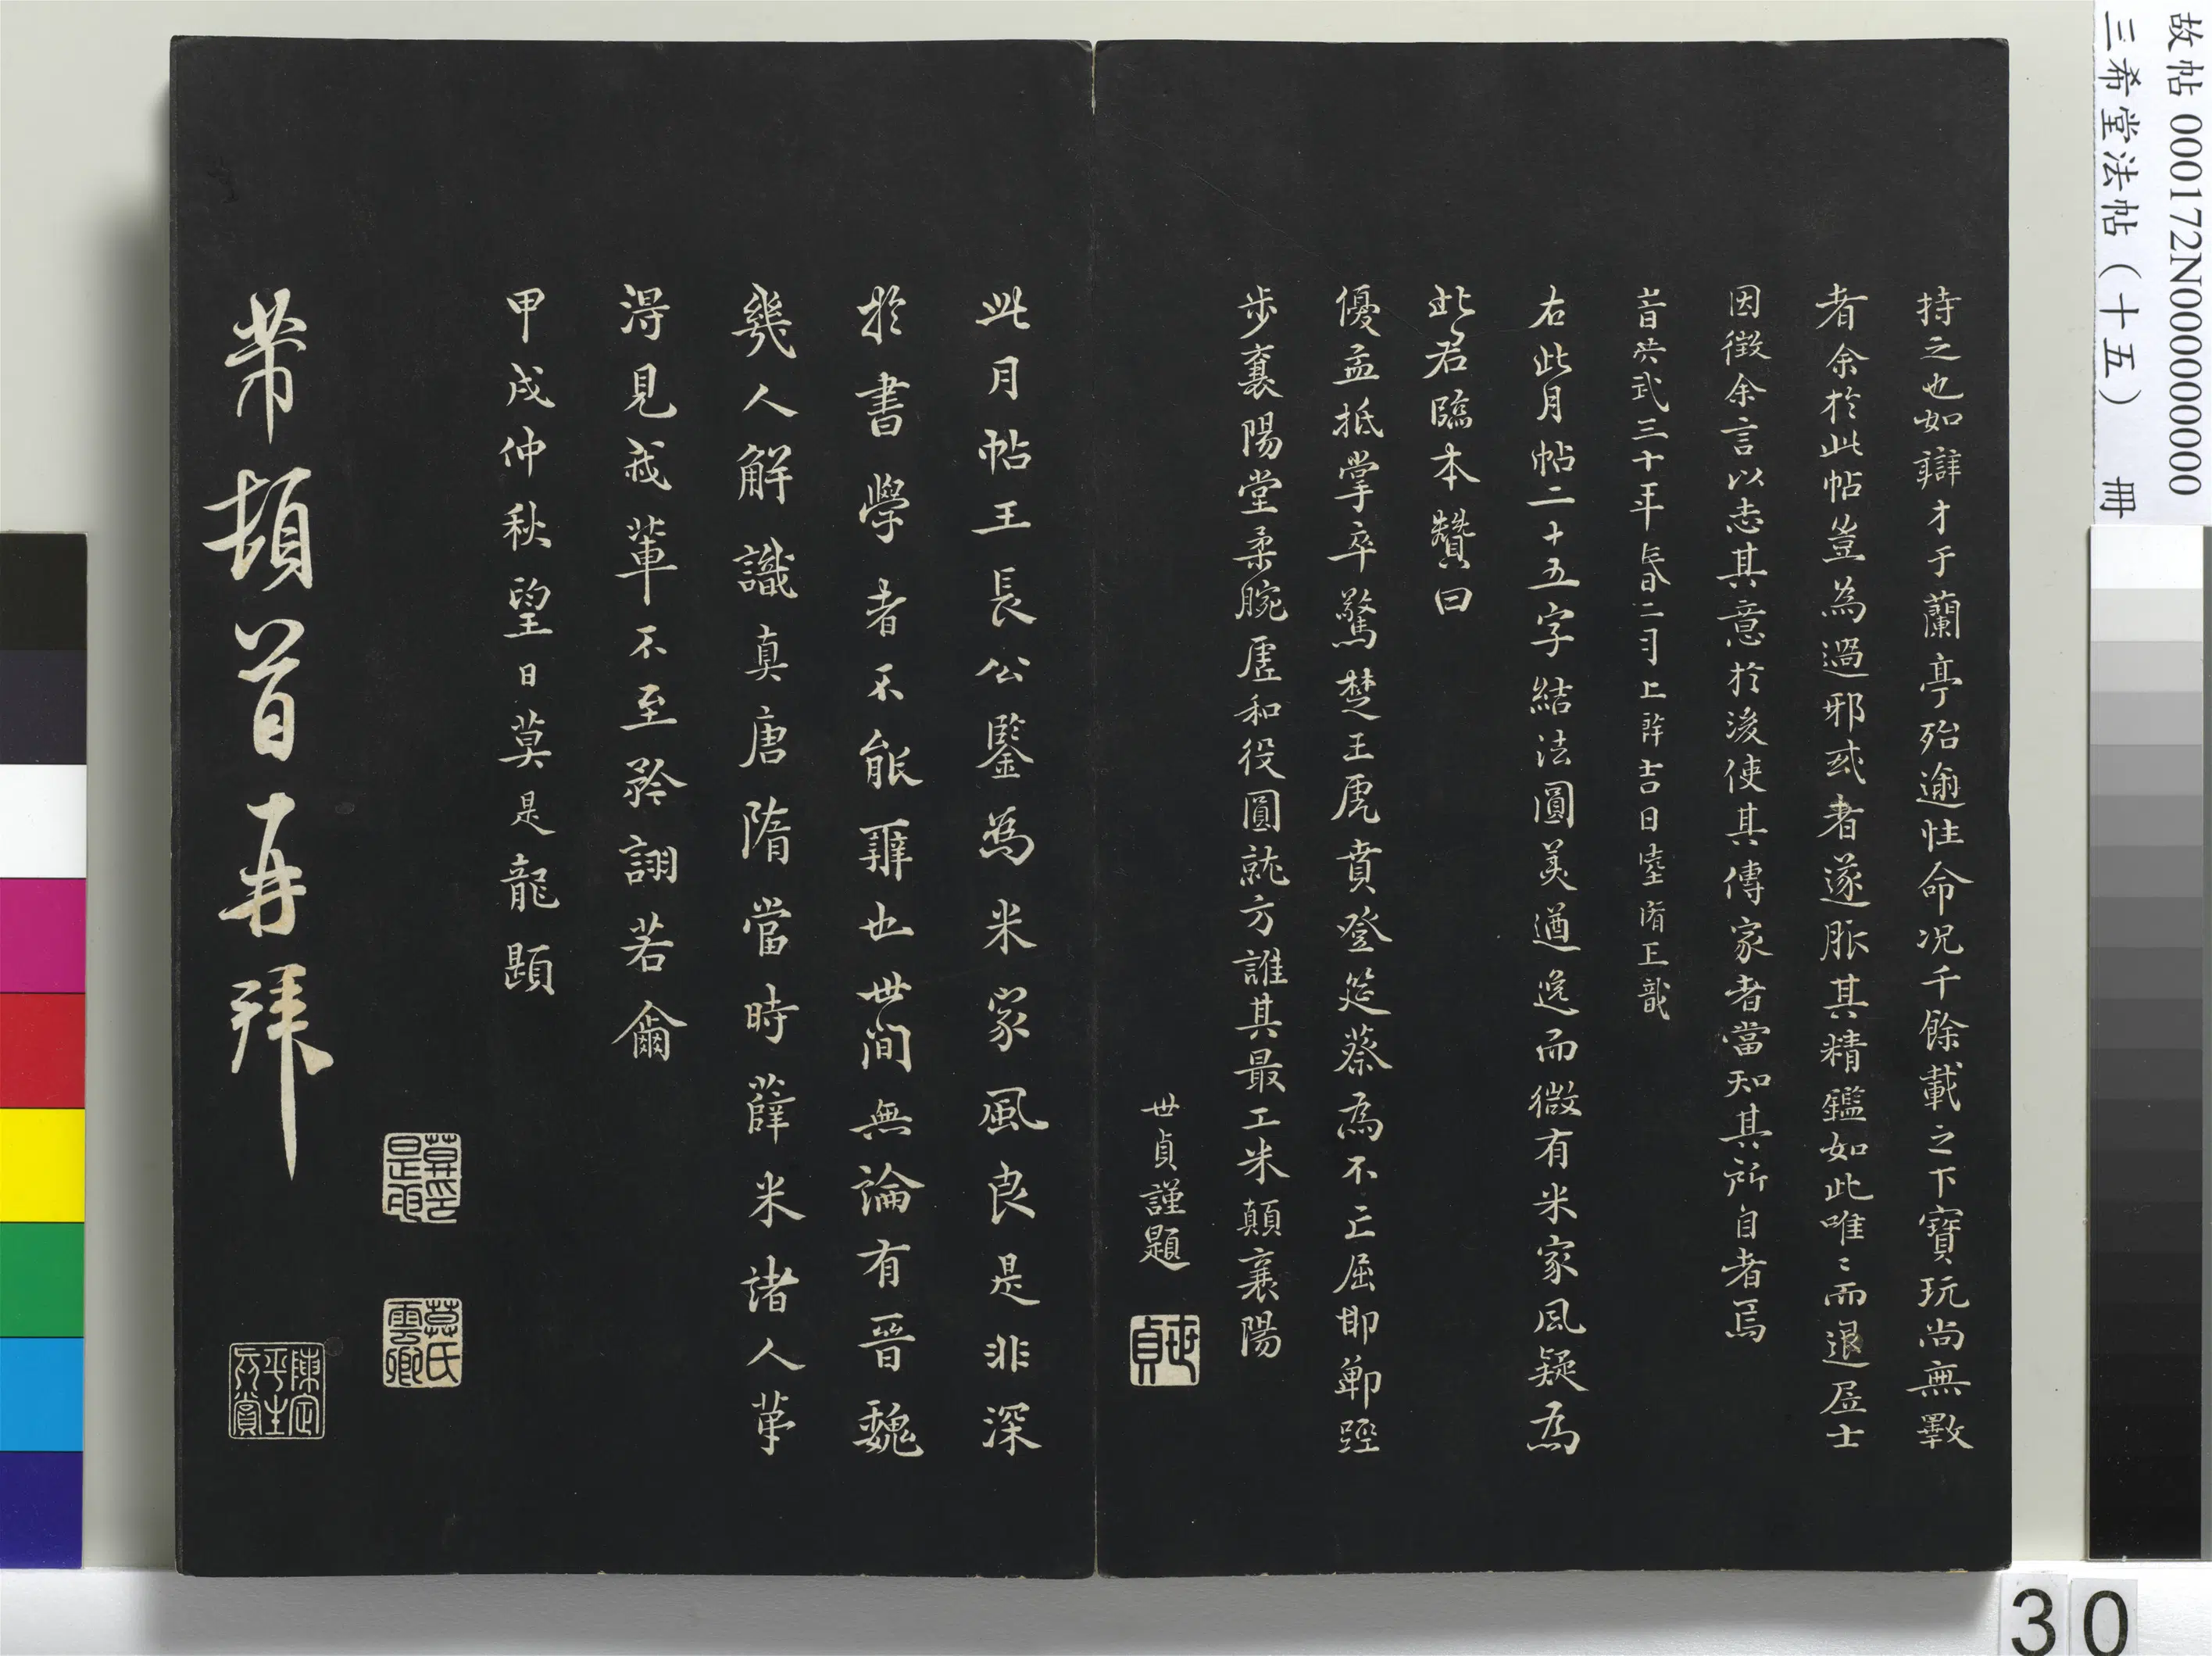 故帖 000172N000000000
三希堂法帖（十五） 冊
持之也如辯才于蘭亭殆逾性命况千餘載之下寶玩尚無斁
者余於此帖豈為過邪或者遂服其精鑑如此唯〻而退居士
因徵余言以志其意於後使其傳家者當知其所自者焉
旹洪武三十年 二月上 吉日 王
右此月帖二十五字結法圓美遒逸而微有米家風疑為
此君臨本贊曰
優孟抵掌卒驚楚王虎賁登筵蔡為不亡屈即鄲蹊
步襄陽堂柔腕虛和役圓就方誰其最工米顛襄陽
世貞謹題
世貞
此月帖王長公鑒為米家風良是非深
於書學者不能辨也世間無論有晉魏
幾人解識真唐隋當時薛米諸人苐
得見我輩不至矜詡若爾
甲戌仲秋望日莫是龍題
莫氏雲卿
芾頓首再拜
陳定平生真賞
30